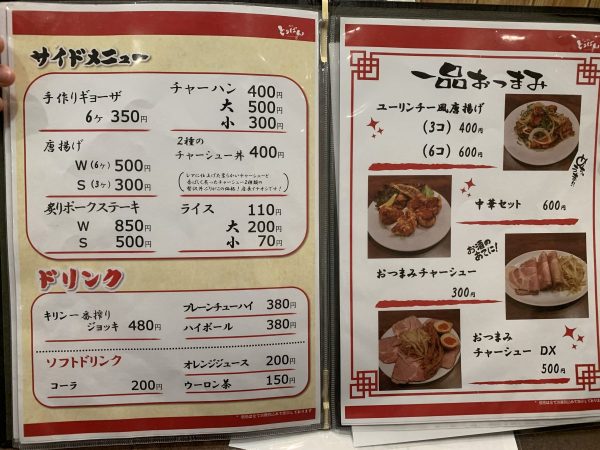 とうげん
サイドメニュー
手作りギョーザ
6ヶ 350円
唐揚げ
W(6ヶ) 500円
S(3ヶ) 300円
炙りポークステーキ
W 850円
S 500円
チャーハン 400円
大 500円
小 300円
2種の
チャーシュー丼 400円
ライス 110円
大 200円
小 70円
ドリンク
キリン一番搾り
ジョッキ 480円
プレーンチューハイ 380円
ハイボール 380円
ソフトドリンク
コーラ 200円
オレンジジュース 200円
ウーロン茶 150円
一品おつまみ
ユーリンチー風唐揚げ
(3コ) 400円
(6コ) 600円
中華セット 600円
お酒の
あてに!
おつまみチャーシュー
300円
おつまみ
チャーシュー DX
500円